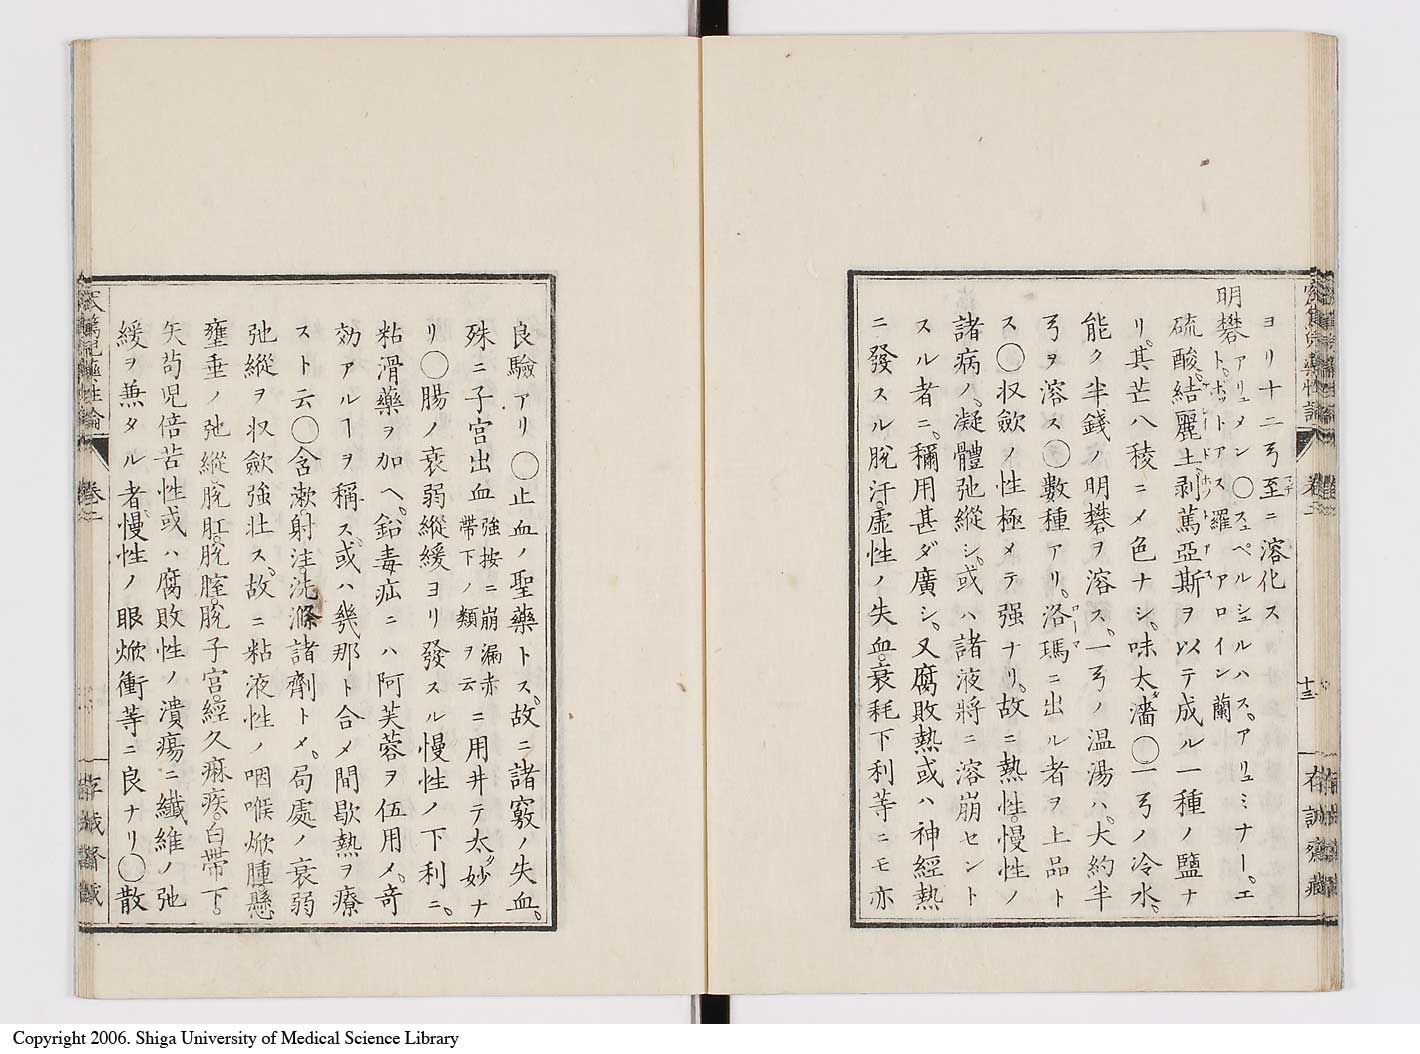 ヨリ十二弓至ニ溶化ス
明礬アリュメン〇スュペルシュルハス。アリュミナー。エト。ポットアス羅 アロイン蘭
硫酸。結麗土。剥篤亞斯ヲ以テ成ル一種ノ鹽ナ
リ。其芒八稜ニ〆色ナシ。味太濇〇一弓ノ冷水。
能ク半錢ノ明礬ヲ溶ス。一弓ノ温湯ハ。大約半
弓ヲ溶ス〇數種アリ。洛瑪ニ出ル者ヲ上品ト
ス〇収歛ノ性極メテ强ナリ。故ニ熱性。慢性ノ
諸病ノ。凝體弛縱シ。或ハ諸液將ニ溶崩セント
スル者ニ。稱用甚ダ廣シ。又腐敗熱或ハ神經熱
ニ發スル脱汗。虚性ノ失血。衰耗下利等ニモ亦
十三
存誠齋藏
良驗アリ〇止血ノ聖藥トス。故ニ諸竅ノ失血。
殊ニ子宮出血强按ニ崩漏赤帶下ノ類ヲ云ニ用井テ太妙ナ
リ〇腸ノ衰弱縱緩ヨリ發スル慢性ノ下利ニ。
粘滑藥ヲ加ヘ。鉛毒疝ニハ阿芙蓉ヲ伍用〆。奇
効アルヿヲ稱ス。或ハ幾那ト合〆間歇熱ヲ療
スト云〇含漱。射注。洗滌諸劑ト〆。局處ノ衰弱
弛縱ヲ収歛强壯ス。故ニ粘液性ノ咽喉焮腫懸
壅垂ノ弛縱。脱肛。脱腟。脱子宮。經久痳疾。白帶下。
矢苟児倍苦性或ハ腐敗性ノ潰瘍ニ纖維ノ弛
緩ヲ兼タル者。慢性ノ眼焮衝等ニ良ナリ〇散
卷二
存誠齋藏
Copyright 2006. Shiga University of Medical Science Library